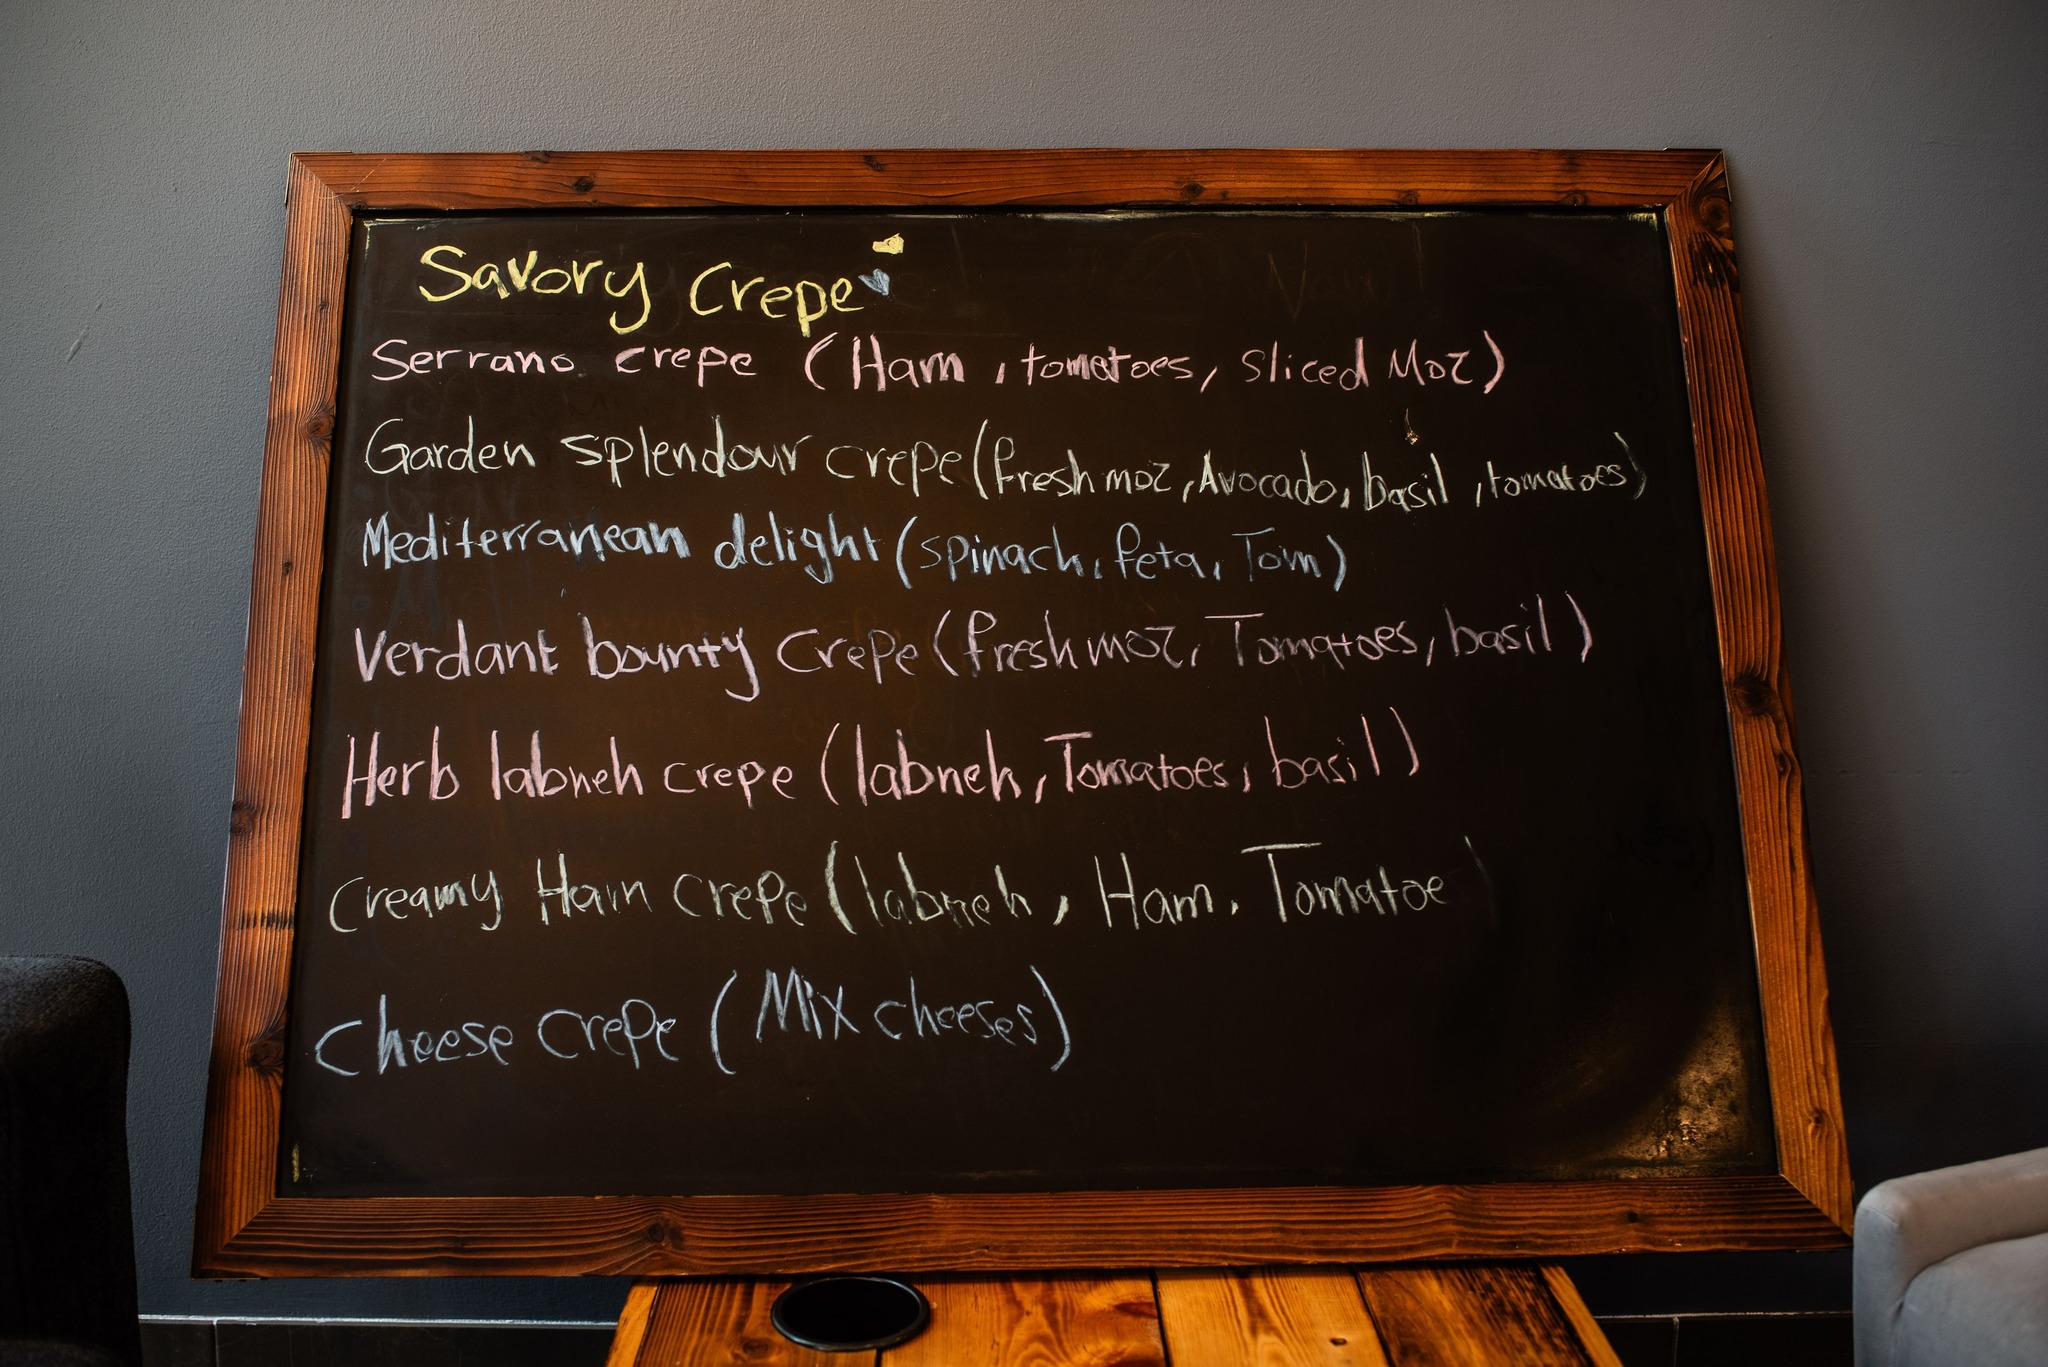 Savory Crepe
Serrano crepe (Ham, tomatoes, Sliced Moz)
Garden splendour crepe (fresh moz, Avocado, basil, tomatoes)
Mediterranean delight (spinach, feta, Tom)
Verdant bounty Crepe (fresh moz, Tomatoes, basil)
Herb labneh crepe (labneh, Tomatoes, basil)
Creamy Ham Crepe (labneh, Ham, Tomatoe)
Cheese Crepe (Mix cheeses)